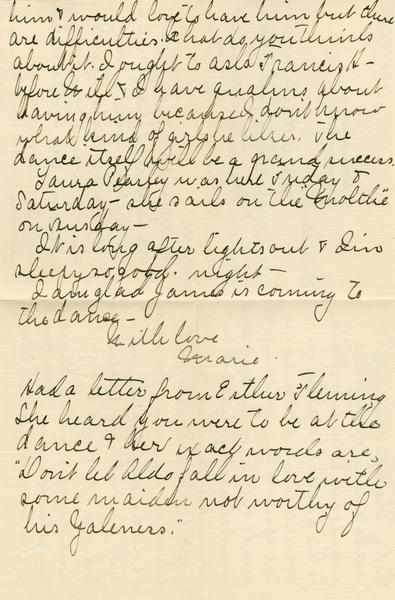 him & would love to have him but there
are difficulties. What do you think
about it. I ought to ask Francis H-
before Will & I have qualms about
having him because I don't know
what kind of girl he likes. The
dance itself will be a grand success.
Laura Peasley was here Friday &
Saturday - she sails on the "
on Tuesday -
It is long after lights out & I'm
sleepy so good-night -
I am glad James is coming to
the dance -
With love
Marie.
Had a letter from Esther Fleming
She heard you were to be at the
dance & her exact words are,
"Don't let Aldo fall in love with
some maiden not worthy of
his Yaleness."